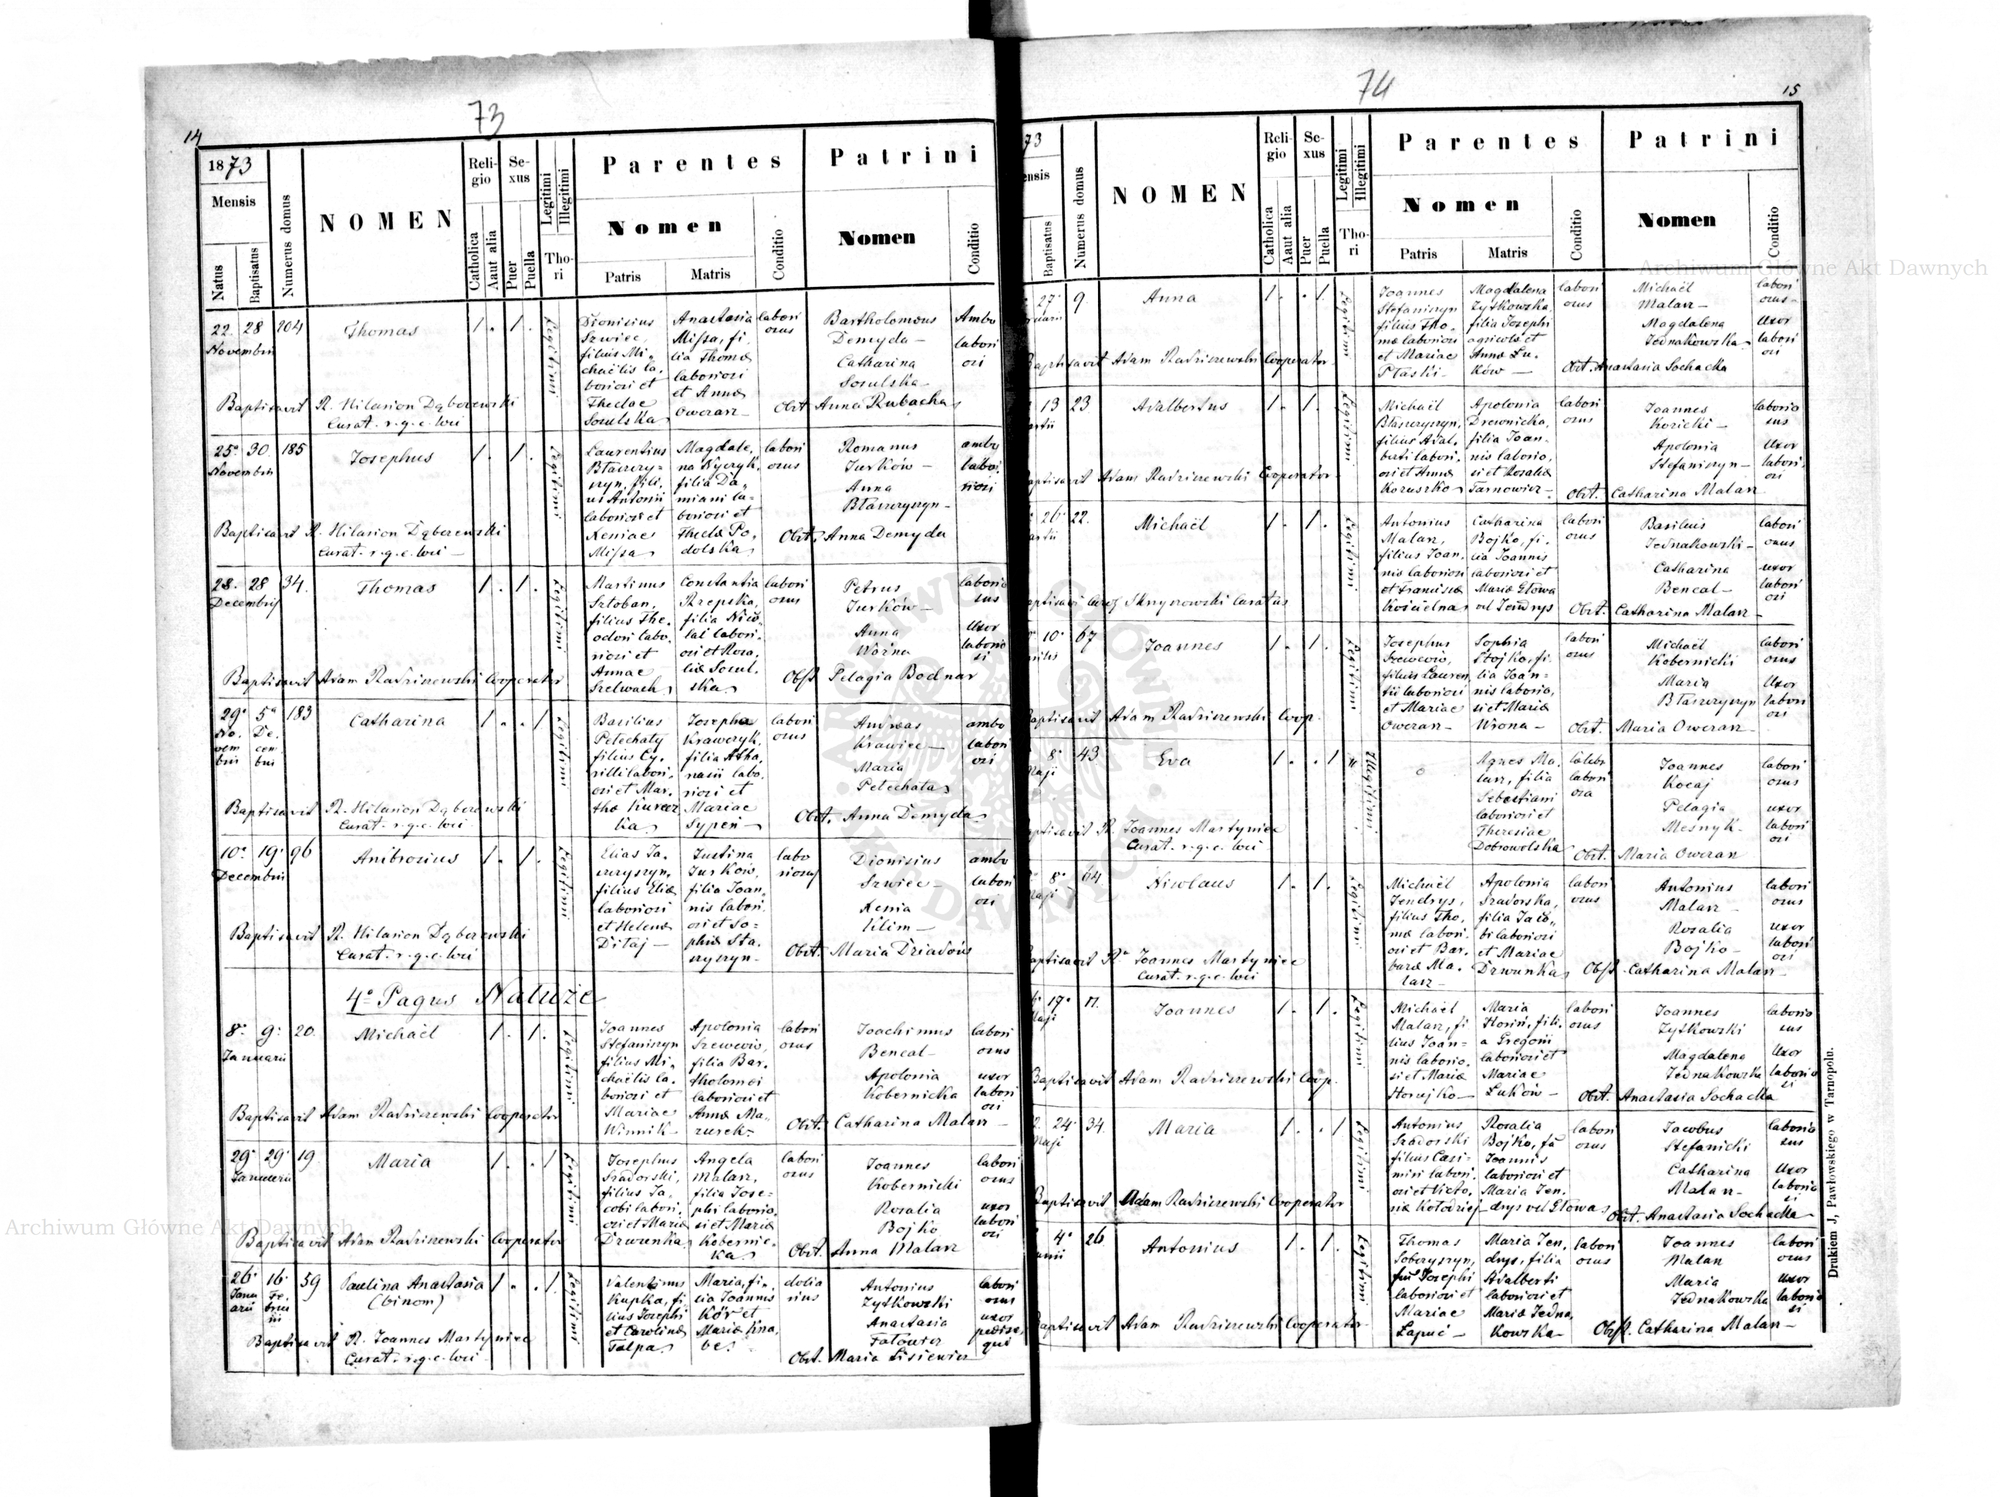 73
14
1873
Mensis
Natus
Baptisatus
Numerus domus
NOMEN
Religio
Catholica
Aaut alia
Sexus
Puer
Puella
Legitimi
Illegitimi
Thori
Parentes
Nomen
Patris
Matris
Conditio
Patrini
Nomen
Conditio
22. 28 204 Thomas 1 . 1 . Legitimi
Novembris
Dionisius
Szwiec,
filius Mi-
chaëlis la-
boriosi et
Theclae
Sosulska
Anastasia
Missa, fi-
lia Thomæ
laboriosi
et Annæ
Oweran
labori
osus
Bartholomæus
Demyda
Catharina
Sosulska
Ambo
labori
osi
Baptisavit R. Hilarion Dąborewski
Curat. r. g. c. loci
Obst. Anna Rubacha
25. 30. 185 Josephus 1 . 1 . Legitimi
Novembris
Laurentius
Błaszczy-
szyn, fili-
us Antonii
laboriosi et
Xeniae
Missa
Magdale-
na Kyczyk,
filia Da-
miani la-
boriosi et
Theclæ Po-
dolska
labori
osus
Romanus
Jurków
Anna
Błaszczyszyn
ambo
labo-
riosi
Baptisavit R. Hilarion Dąborewski
Curat. r. g. c. loci
Obst. Anna Demyda
28. 28 34. Thomas 1 . 1 . Legitimi
Decembris
Martinus
Sztoban,
filius The-
odori labo-
riosi et
Annae
Szelwach
Constantia
Rzepska,
filia Nico-
lai labori-
osi et Rosa-
liæ Sosul-
ska
labori
osus
Petrus
Jurków
Anna
Woźna
laborio
sus
uxor
laborio
si
Baptisavit Adam Radziszewski Cooperator
Obst Pelagia Bodnar
29. 5. 183 Catharina 1 . . 1 Legitimi
No-
vem
bris
De-
cem-
bris
Basilius
Petechaty
filius Cy-
rilli labori-
osi et Mar-
thæ Kuraz
ka
Josepha
Krawczyk,
filia Atha-
nasii labo-
riosi et
Mariae
Sypeń
labori
osus
Andreas
Krawiec
Maria
Petechata
ambo
labori
osi
Baptisavit R. Hilarion Dąborewski
Curat. r. g. c. loci
Obst. Anna Demyda
10. 19. 96 Ambrosius 1 . 1 . Legitimi
Decembris
filius Eliæ
laboriosi
et Helenæ
Ditaj
Justina
Jurków,
filia Joan-
nis labori-
osi et So-
phiæ Sta-
szyszyn
labo
riosus
Dionisius
Szwiec
Xenia
Klim
ambo
labori
osi
Baptisavit R. Hilarion Dąborewski
Curat. r. g. c. loci
Obst. Maria Dziadoś
4o Pagus Naluże
8. 9. 20. Michaël 1 . 1 . Legitimi
Januarii
Joannes
Stefaniszyn
filius Mi-
chaëlis la-
boriosi et
Mariae
Winnik
Apolonia
Szewców,
filia Bar-
tholomei
laboriosi et
Annæ Ma-
zurek
labori
osus
Joachimus
Bencal
Apolonia
Kobernicka
labori
osus
uxor
labori
osi
Baptisavit Adam Radziszewski Cooperator
Obst. Catharina Malarz
29. 29. 19. Maria 1 . . 1 Legitimi
Januarii
Josephus
Sradorski,
filius Ja-
cobi labori-
osi et Mariæ
Drwenka
Angela
Malarz,
filia Jose-
phi laborio-
si et Mariæ
Kobernic-
ka
labori
osus
Joannes
Kobernicki
Rosalia
Bojko
labori
osus
uxor
labori
osi
Baptisavit Adam Radziszewski Cooperator
Obst. Anna Malarz
26. 16. 59 Paulina Anastasia 1 . . 1 Legitimi
Janu
arii
Fe-
brua
rii
(binom)
Valentinus
Kupka, fi-
lius Josephi
et Carolinæ
Talpa
Maria, fi-
lia Joannis
Kór et
Mariæ Kna-
be
dolia
rius
Antonius
Zytkowski
Anastasia
labori
osus
uxor
Baptisavit R. Joannes Martyniec
Curat. r. g. c. loci
Obst. Maria Lisiewicz
74
15
73
ensis
Baptisatus
Numerus domus
NOMEN
Religio
Catholica
Aaut alia
Sexus
Puer
Puella
Legitimi
Illegitimi
Thori
Parentes
Nomen
Patris
Matris
Conditio
Patrini
Nomen
Conditio
27. 9. Anna 1 . . 1 Legitimi
Joannes
Stefaniszyn
filius Tho-
mæ laboriosi
et Mariae
Ptaski
Magdalena
Zytkowska,
filia Josephi
agricolæ et
Annæ Lu-
ków
labori
osus
Michaël
Malarz
Magdalena
Jednakowska
labori
osus
uxor
labori
osi
Baptisavit Adam Radziszewski Cooperator
Obst. Anastasia Sochacka
13 23 Adalbertus 1 . 1 . Legitimi
Michaël
Błaszczyszyn,
filius Adal-
berti labori-
osi et Annæ
Koruszko
Apolonia
Drewnicka,
filia Joan-
nis laborio-
si et Rosaliæ
Tarnowicz
labori
osus
Joannes
Koricki
Apolonia
Stefaniszyn
laborio
sus
uxor
labori
osi
Baptisavit Adam Radziszewski Cooperator
Obst. Catharina Malarz
26. 22. Michaël 1 . 1 . Legitimi
Antonius
Malarz,
filius Joan-
nis laboriosi
et Franciscæ
Kościelna
Catharina
Bojko, fi-
lia Joannis
laboriosi et
Mariæ Głowa
vel Jendrys
labori
osus
Basilius
Jednakowski
Catharina
Bencal
labori
osus
uxor
labori
osi
Skrynowski Curatus
Obst. Catharina Malarz
10. 67 Joannes 1 . 1 . Legitimi
Josephus
Szewców,
filius Lauren
tii laboriosi
et Mariae
Oweran
Sophia
Stojko, fi-
lia Joan-
nis laborio-
si et Mariæ
Wrona
labori
osus
Michaël
Kobernicki
Maria
Błaszczyszyn
labori
osus
uxor
labori
osi
Baptisavit Adam Radziszewski Coop.
Obst. Maria Oweran
8. 43 Eva 1 . . 1 Illegitimi
Maji
Agnes Ma-
larz, filia
Sebastiani
laboriosi et
Theresiae
Dobrowolska
labori
osa
Joannes
Kocaj
Pelagia
Mesnyk
labori
osus
uxor
labori
osi
Baptisavit R. Joannes Martyniec
Curat. r. g. c. loci
Obst. Maria Oweran
8. 64 Nicolaus 1 . 1 . Legitimi
Maji
Michaël
Jendrys,
filius Tho-
mæ labori-
osi et Bar-
baræ Ma-
larz
Apolonia
Sradorska,
filia Jaco-
bi laboriosi
et Mariae
Drwunka
labori
osus
Antonius
Malarz
Rosalia
Bojko
labori
osus
uxor
labori
osi
Baptisavit R. Joannes Martyniec
Curat. r. g. c. loci
Obst. Catharina Malarz
17. 11. Joannes 1 . 1 . Legitimi
Maji
Michaël
Malarz, fi
lius Joan-
nis laborio-
si et Mariæ
Horujko
Maria
Horin, fili-
a Gregorii
laboriosi et
Mariae
Luków
labori
osus
Joannes
Zytkowski
Magdalena
Jednakowska
laborio
sus
uxor
laborio
si
Baptisavit Adam Radziszewski Coop.
Obst. Anastasia Sochacka
24. 34. Maria 1 . . 1 Legitimi
Maji
Antonius
Sradorski
filius Casi-
miri labori-
osi et Victo-
riæ Kołodziej
Rosalia
Bojko, fa
Joannis
laboriosi et
Maria Jen-
drys vel Głowa
labori
osus
Jacobus
Stefanicki
Catharina
Malarz
laborio
sus
uxor
laborio
si
Baptisavit Adam Radziszewski Cooperator
Obst. Anastasia Sochacka
4. 26 Antonius 1 . 1 . Legitimi
Junii
Thomas
Soberyszyn,
fius Josephi
laboriosi et
Mariae
Łapuć
Maria Jen-
drys, filia
Adalberti
laboriosi et
Mariæ Jedna-
kowska
labori
osus
Joannes
Malarz
Maria
Jednakowska
labori
osus
uxor
laborio
si
Baptisavit Adam Radziszewski Cooperator
Obst. Catharina Malarz
Drukiem J. Pawłowskiego w Tarnopolu.
Archiwum Główne Akt Dawnych
Archiwum Główne Akt Dawnych
ARCHIWUM GŁÓWNE AKT DAWNYCH